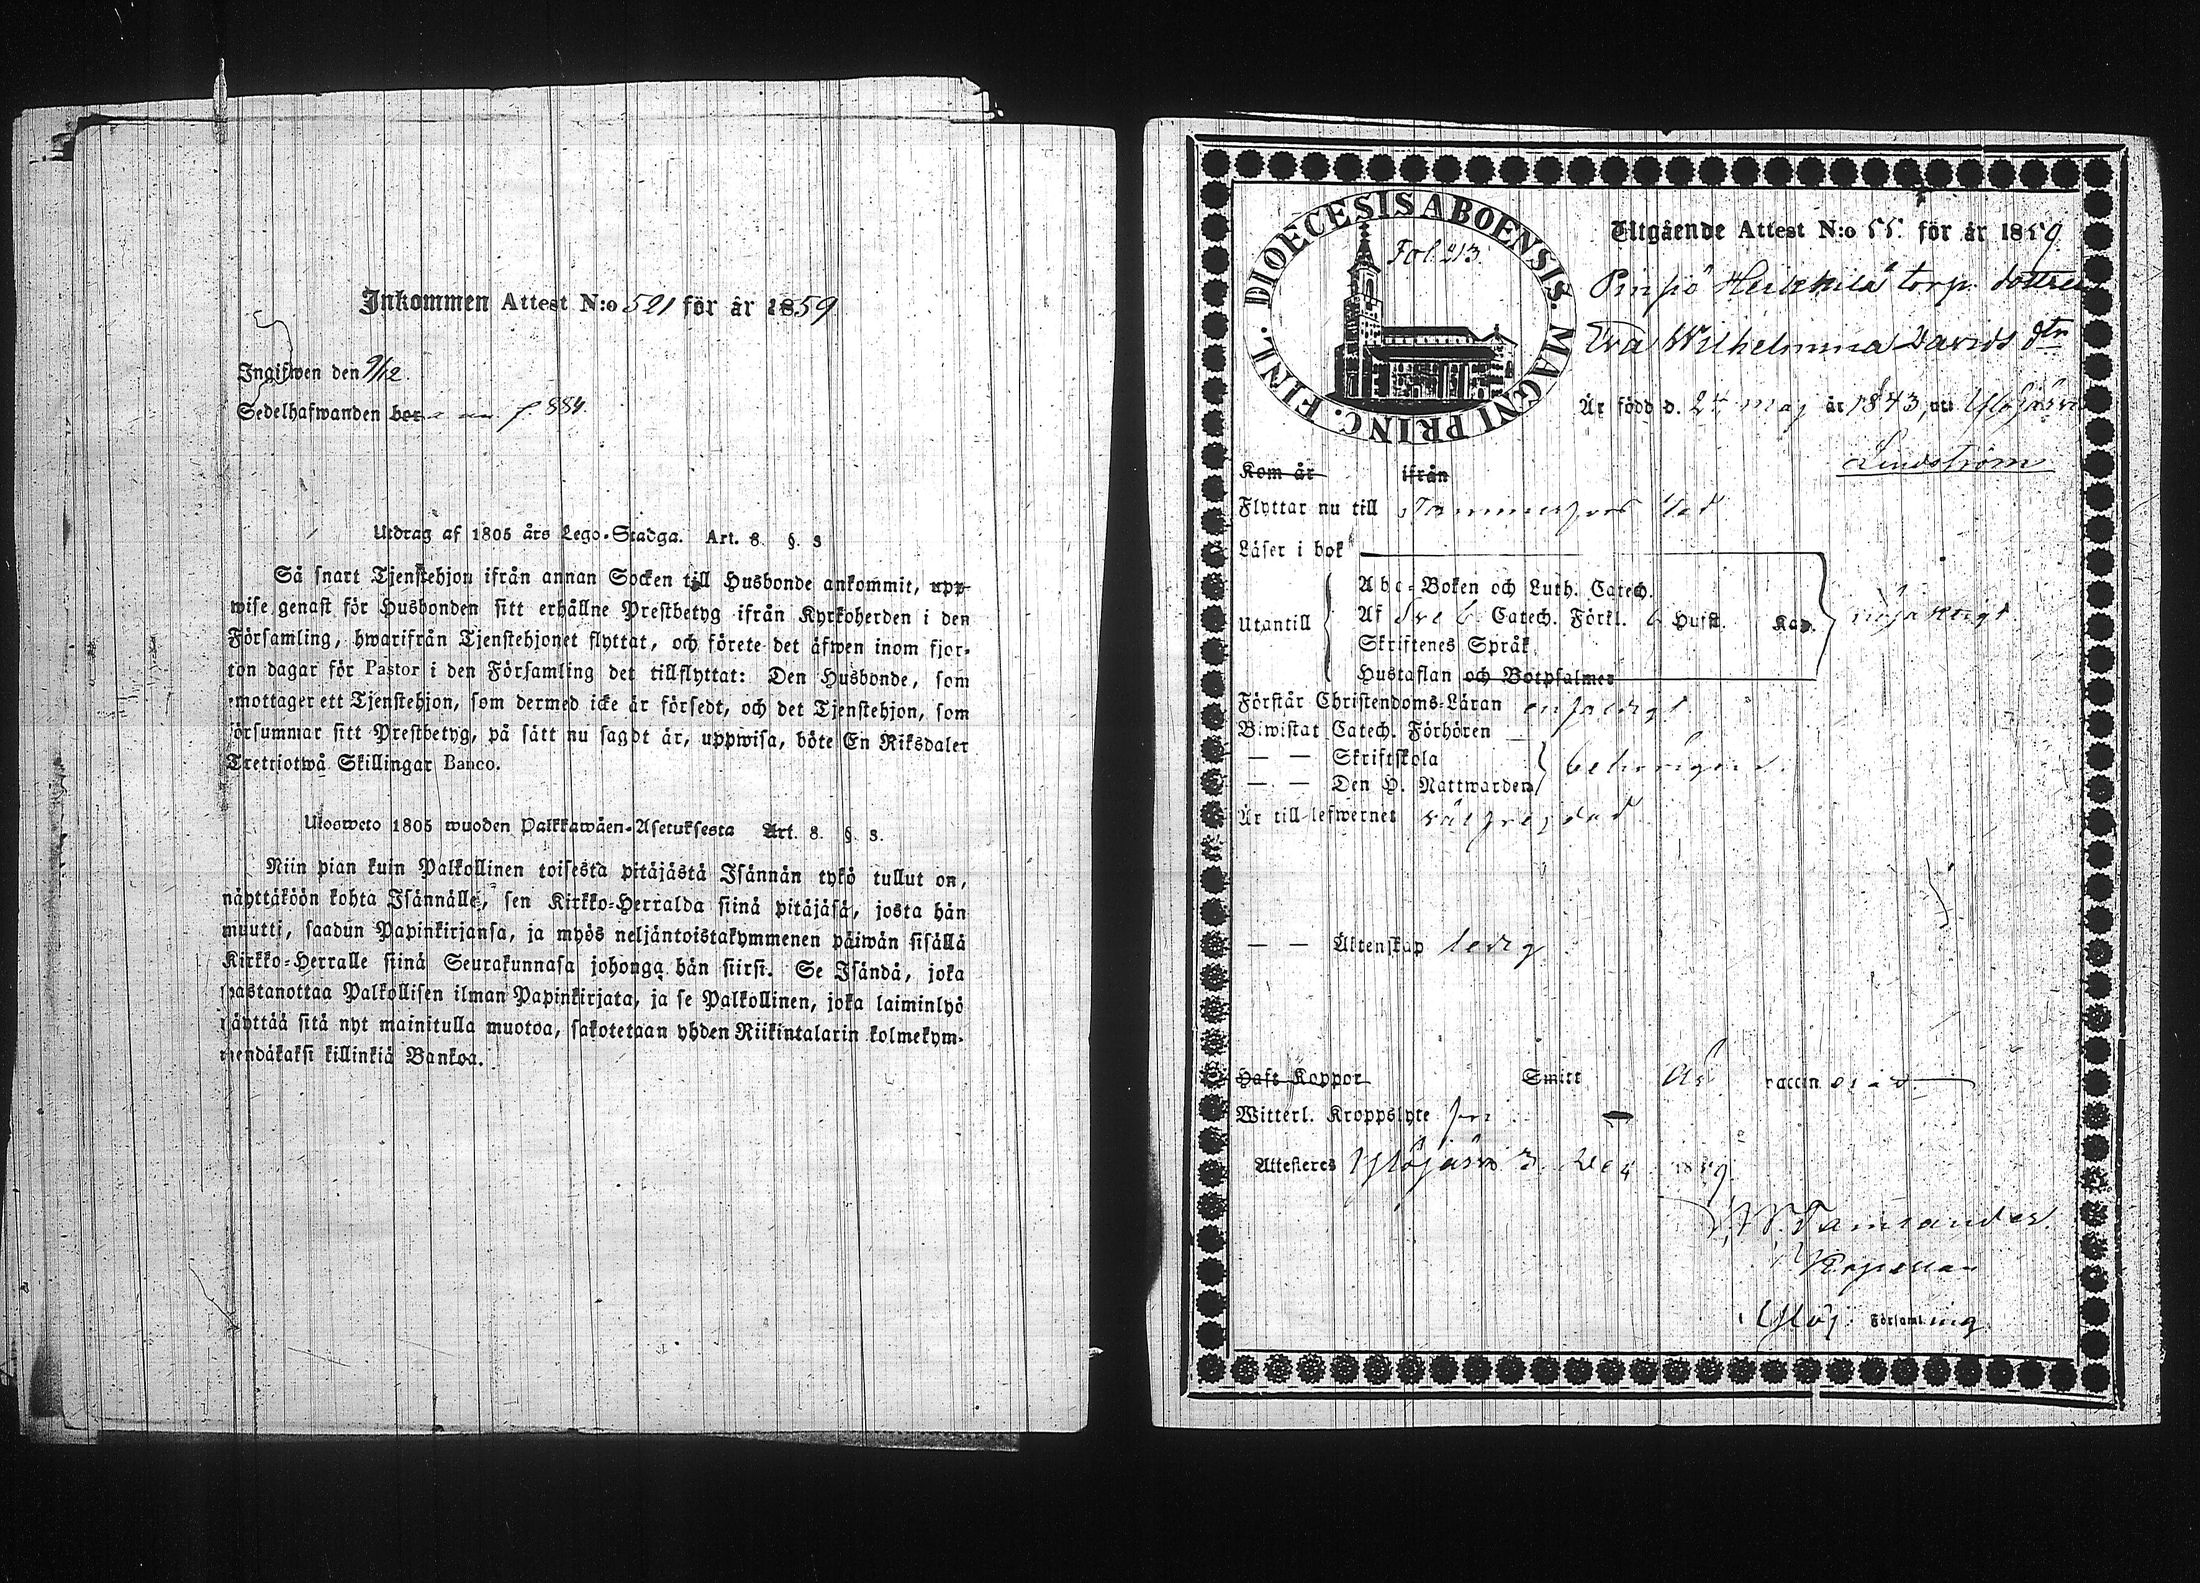 Inkommen Attest N:o 521 för år 1859
Ingifwen den 9/12.
Sedelhafwanden bor p 884.
Utdrag af 1805 års Lego-Stadga. Art. 8. §. 3
Så snart Tjenstehjon ifrån annan Socken till Husbonde ankommit, upp-
wise genast för Husbonden sitt erhållne Prestbetyg ifrån Kyrkoherden i den
Församling, hwarifrån Tjenstehjonet flyttat, och förete det äfwen inom fjor-
ton dagar för Pastor i den Församling det tillflyttat: Den Husbonde, som
emottager ett Tjenstehjon, som dermed icke är försedt, och det Tjenstehjon, som
försummar sitt Prestbetyg, på sätt nu sagdt är, uppwisa, böte En Riksdaler
Tretriotwå Skillingar Banco.
Ulosweto 1805 wuoden Palkkawäen-Asetuksesta Art. 8. §. 3.
Niin pian kuin Palkollinen toisesta pitäjästä Isännän tykö tullut on,
näyttäköön kohta Isännälle, sen Kirkko-Herralda siinä pitäjäsä, josta hän
muutti, saadun Papinkirjansa, ja myös neljäntoistakymmenen päiwän sisällä
Kirkko-Herralle siinä Seurakunnasa johonga hän siirsi. Se Isändä, joka
wastanottaa Palkollisen ilman Papinkirjata, ja se Palkollinen, joka laiminlyö
näyttää sitä nyt mainitulla muotoa, sakotetaan yhden Riikintalarin kolmekym-
mendäkaksi killinkiä Bankoa.
DIOECESIS ABOENSIS. MAGNI PRINC. FINL.
Fol. 213.
Utgående Attest N:o 55. för år 1859
Pinsiö Heikkilä torp. dottren
Eva Wilhelmina Davids dtr
Är född d. 24 maj år 1843, uti Ylöjärvi
Lindström
Kom år ifrån
Flyttar nu till Tammerfors stad
Läser i bok
Abc-Boken och Luth. Catech.
Utantill Af Sve b. Catech. Förkl. 6 Hufst. Kap. nöjaktigt.
Skriftenes Språk
Hustaflan och Botpsalmer
Förstår Christendoms-Läran enfaldigt
Biwistat Catech. Förhören
— — Skriftskola behörigen.
— — Den H. Nattwarden
Är till lefwernet välfrejdad
— — Äktenskap ledig
Haft Koppor Smitt Är vaccinerad
Witterl. Kroppslyte fri
Attesteres Ylöjärvi 3. Dec 1859
Tamlander.
Kapellan
Ylöj. Församling.